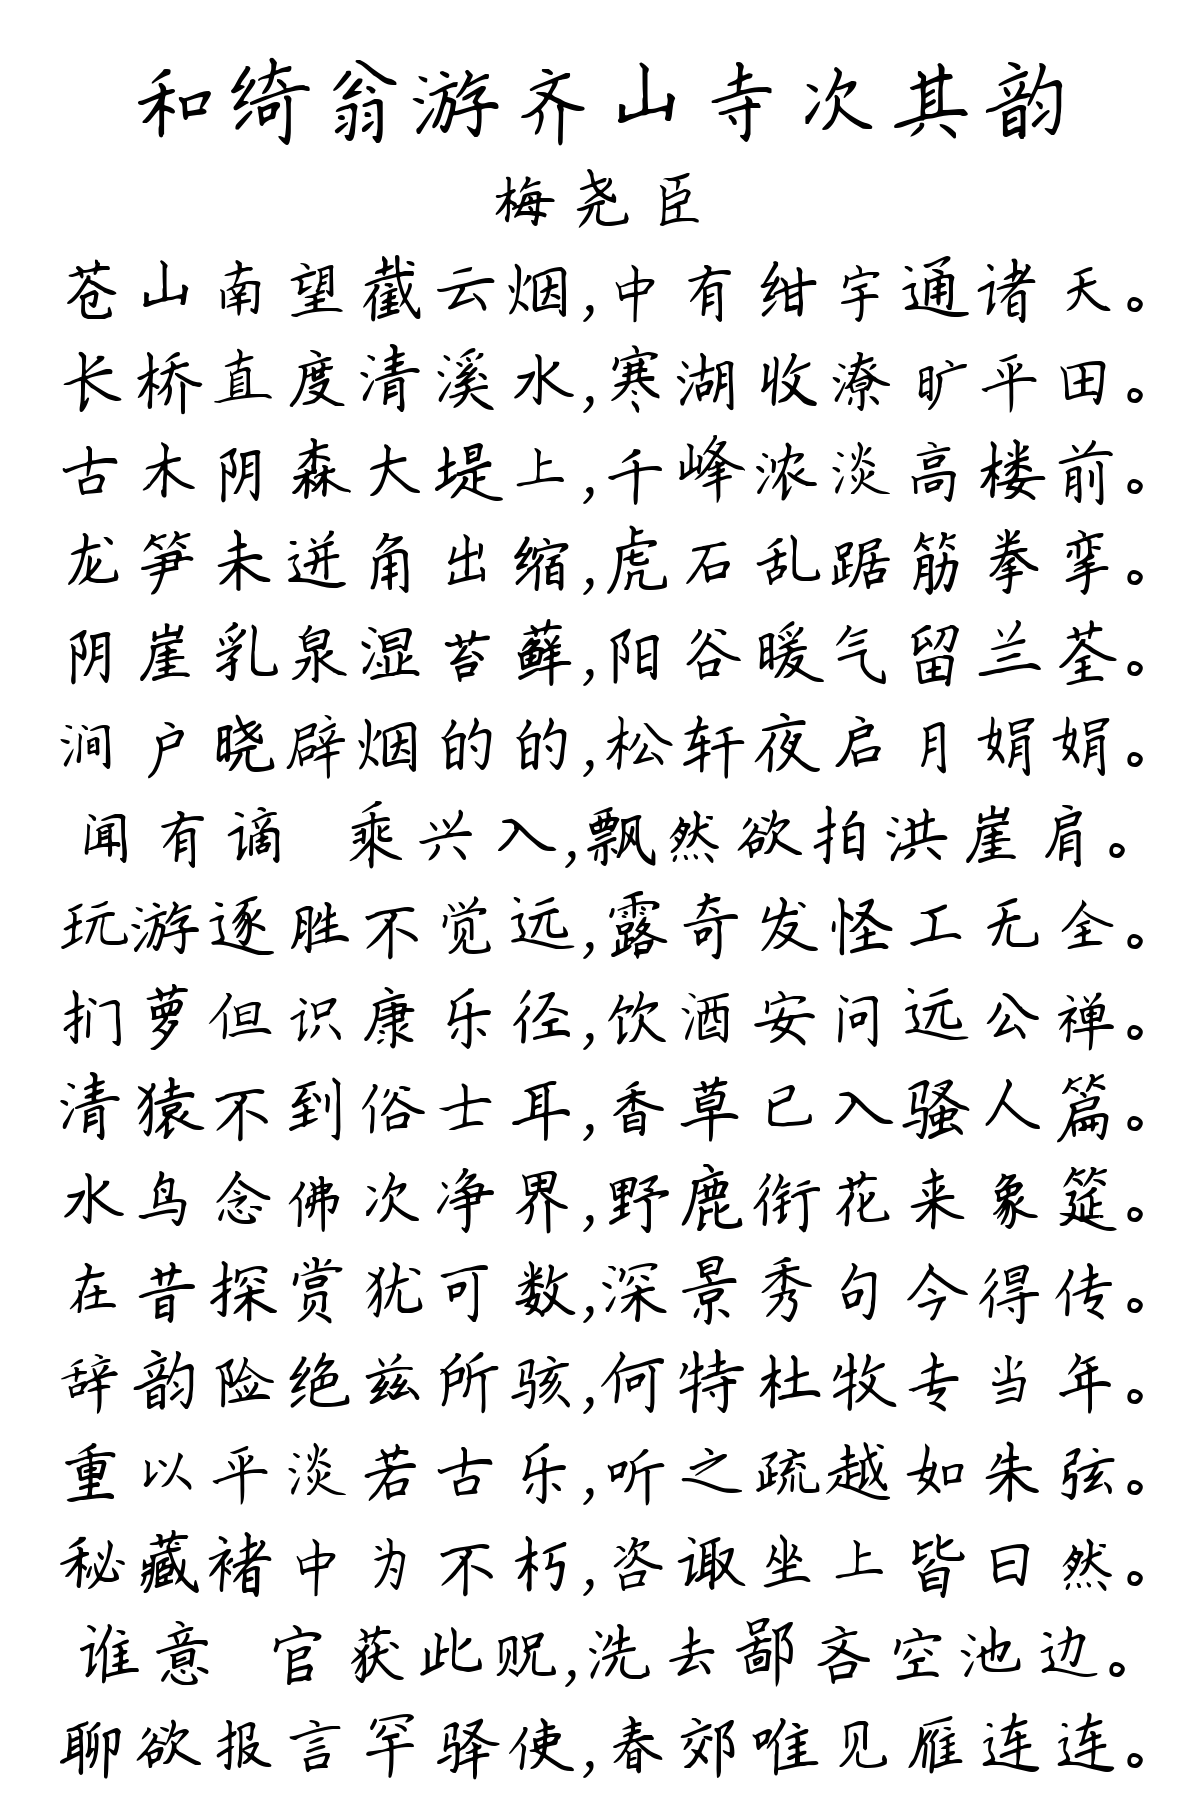 和绮翁游齐山寺次其韵
梅尧臣
苍山南望截云烟,中有绀宇通诸天。
长桥直度清溪水,寒湖收潦旷平田。
古木阴森大堤上,千峰浓淡高楼前。
龙笋未迸角出缩,虎石乱踞筋拳挛。
阴崖乳泉湿苔藓,阳谷暖气留兰荃。
涧户晓辟烟的的,松轩夜启月娟娟。
闻有谪 乘兴入,飘然欲拍洪崖肩。
玩游逐胜不觉远,露奇发怪工无全。
扪萝但识康乐径,饮酒安问远公禅。
清猿不到俗士耳,香草已入骚人篇。
水鸟念佛次净界,野鹿衔花来象筵。
在昔探赏犹可数,深景秀句今得传。
辞韵险绝兹所骇,何特杜牧专当年。
重以平淡若古乐,听之疏越如朱弦。
秘藏褚中为不朽,咨诹坐上皆曰然。
谁意 官获此贶,洗去鄙吝空池边。
聊欲报言罕驿使,春郊唯见雁连连。